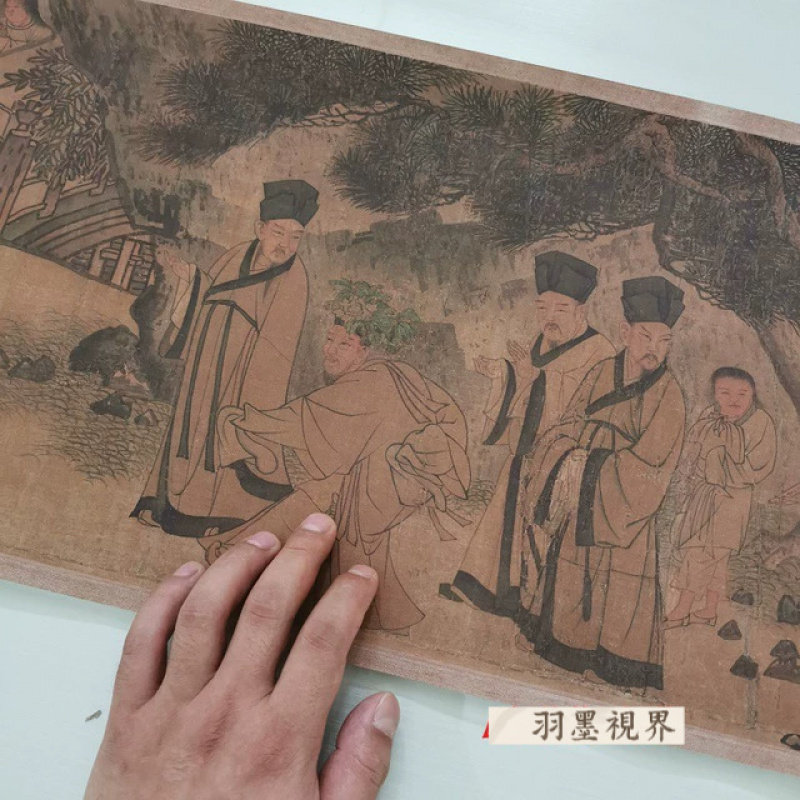 羽墨視界